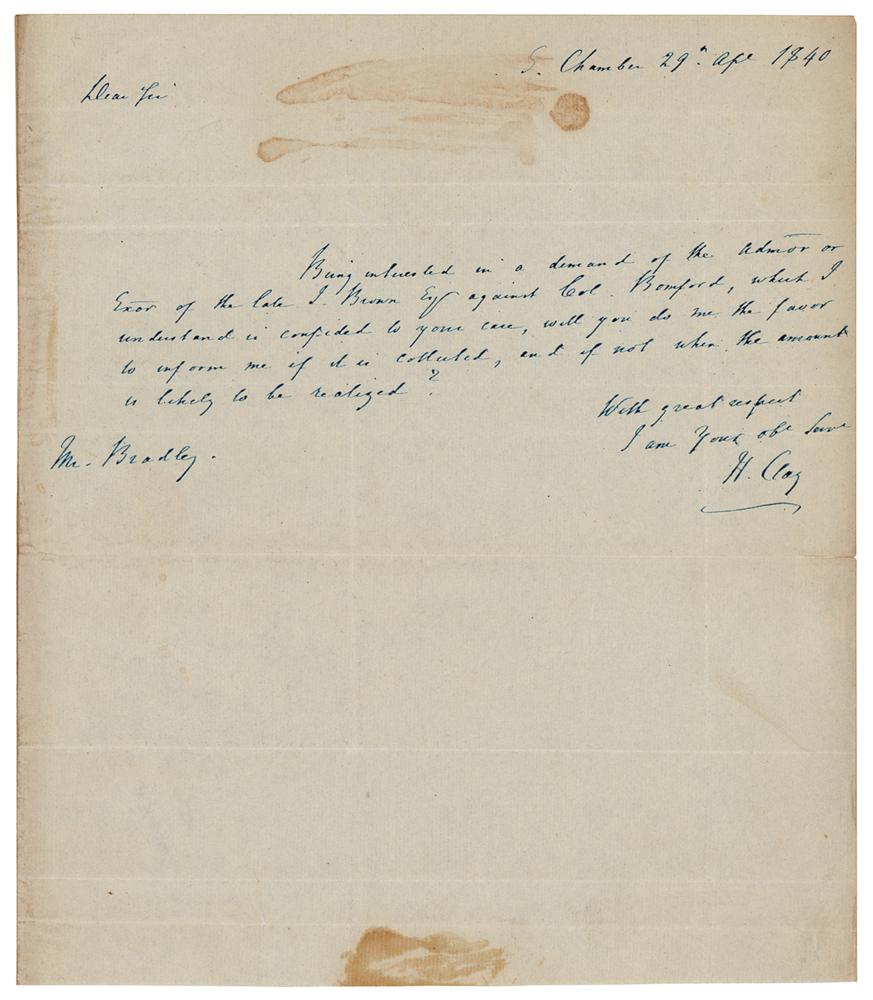 S. Chamber 29h. Apl 1840
Dear Sir
Being interested in a demand of the Admor or
Exor of the late J. Brown Esqr against Col. Bomford, which I
understand is confided to your care, will you do me the favor
to inform me if it is collected, and if not when the amount
is likely to be realized?
With great respect
I am Your obt Servt
H. Clay
Mr. Bradley.